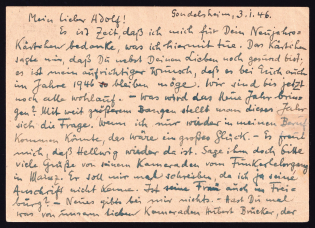 Gondelsheim, 3.1.46.
Mein lieber Adolf!
Es ist Zeit, daß ich mich für Dein Neujahrs-
kärtchen bedanke, was ich hiermit tue. Das Kärtchen
sagte mir, daß Du nebst Deinen Lieben noch gesund bist.
es ist mein aufrichtiger Wunsch, daß es bei Euch auch
im Jahre 1946 so bleiben möge. Wir sind bis jetzt
noch alle wohlauf. – Was wird das Neue Jahr brin-
gen? Mit viel größerem Bangen stellt man dieses Jahr
sich die Frage. Wenn ich nur wieder in meinen Beruf
kommen könnte, das wäre ein großes Glück. – Es freut
mich, daß Hellwig wieder da ist. Sage ihm doch bitte
viele Grüße von seinem Kameraden vom Funkerlehrgang
in Mainz. Er soll mir mal schreiben, da ich ja seine
Anschrift nicht kenne. Ist seine Frau auch in Frei-
burg? – Neues gibts bei mir nichts. – Hast Du mal
was von unserm lieben Kameraden Hubert Brücker, der